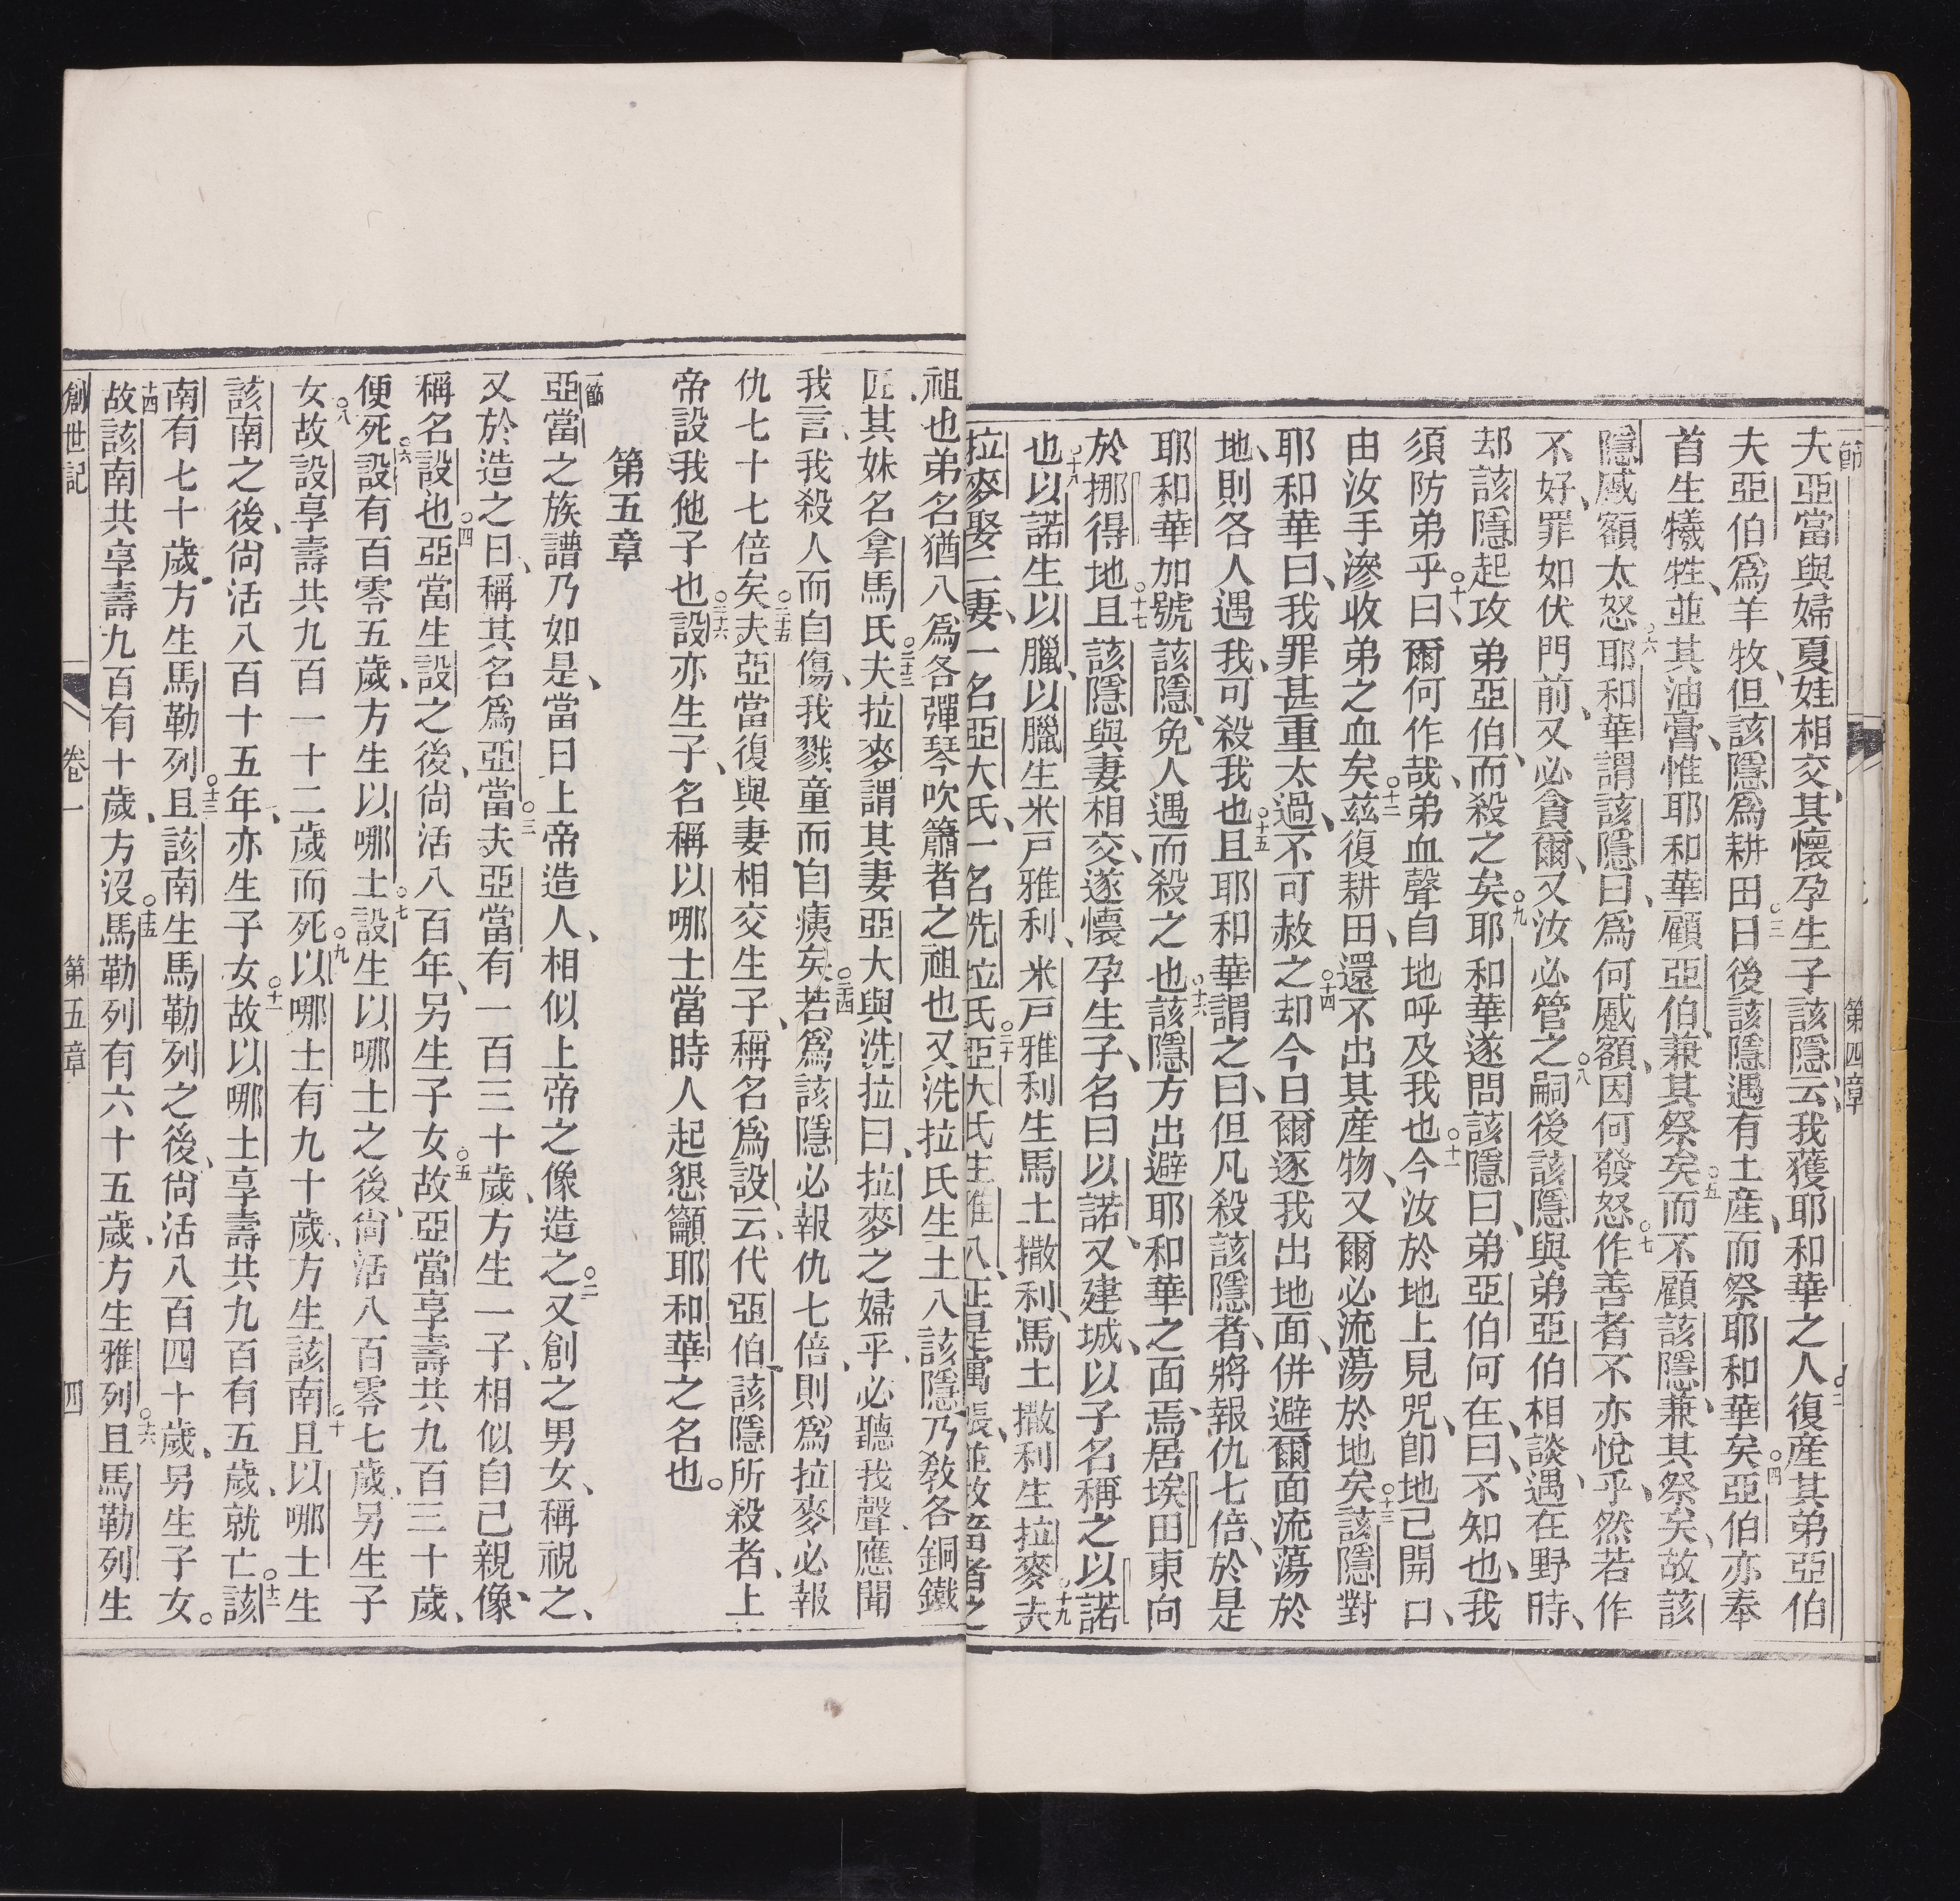 第四章
一節
夫亞當與婦夏娃相交、其懷孕生子該隱、云、我獲耶和華之人○二復產其弟亞伯
夫亞伯爲羊牧、但該隱爲耕田○三日後該隱遇有土產、而祭耶和華矣○四亞伯亦奉
首生犧牲、並其油膏、惟耶和華顧亞伯、兼其祭矣○五而不顧該隱、兼其祭矣、故該
隱慼額太怒○六耶和華謂該隱曰、爲何慼額、因何發怒○七作善者不亦悅乎、然若作
不好、罪如伏門前、又必貪爾、又汝必管之○八嗣後該隱與弟亞伯相談、遇在野時、
却該隱起攻弟亞伯、而殺之矣○九耶和華遂問該隱曰、弟亞伯何在、曰、不知也、我
須防弟乎○十曰、爾何作哉、弟血聲自地呼及我也○十一今汝於地上見咒、卽地已開口、
由汝手滲收弟之血矣○十二茲復耕田、還不出其產物、又爾必流蕩於地矣○十三該隱對
耶和華曰、我罪甚重太過、不可赦之○十四却今日爾逐我出地面、併避爾面流蕩於
地、則各人遇我、可殺我也○十五且耶和華謂之曰、但凡殺該隱者、將報仇七倍、於是
耶和華加號該隱、免人遇而殺之也○十六該隱方出避耶和華之面焉、居埃田東向
於挪得地○十七且該隱與妻相交、遂懷孕生子、名曰以諾、又建城、以子名稱之以諾
也○十八以諾生以臘、以臘生米戸雅利、米戸雅利生馬土撒利、馬土撒利生拉麥○十九夫
拉麥娶二妻、一名亞大氏、一名洗拉氏○二十亞大氏生雅八、正是寓帳、並牧畜者之
祖也、弟名猶八爲各彈琴吹簫者之祖也、又洗拉氏生土八該隱、乃教各銅鐵
匠、其妹名拿馬氏○二十三夫拉麥謂其妻亞大與洗拉曰、拉麥之婦乎、必聽我聲、應聞
我言、我殺人而自傷、我戮童而自痍矣○二十四若爲該隱必報仇七倍、則爲拉麥必報
仇七十七倍矣○二十五夫亞當復與妻相交生子、稱名爲設、云、代亞伯、該隱所殺者、上
帝設我他子也○二十六設亦生子、名稱以哪士、當時人起懇籲耶和華之名也。
第五章
一節
亞當之族譜乃如是、當日上帝造人、相似上帝之像造之○二又創之男女、稱祝之、
又於造之日、稱其名爲亞當○三夫亞當有一百三十歲、方生一子、相似自己親像、
稱名設也○四亞當生設之後、尙活八百年、另生子女○五故亞當享壽共九百三十歲、
便死○六設有百零五歲、方生以哪士○七設生以哪士之後、尙活八百零七歲、另生子
女○八故設享壽共九百一十二歲而死○九以哪士有九十歲、方生該南○十且以哪士生
該南之後、尙活八百十五年、亦生子女○十一故以哪士享壽共九百有五歲、就亡○十二該
南有七十歲、方生馬勒列○十三且該南生馬勒列之後、尙活八百四十歲、另生子女。
十四故該南共享壽九百有十歲、方沒○十五馬勒列有六十五歲、方生雅列○十六且馬勒列生
創世記 卷一 第五章 四